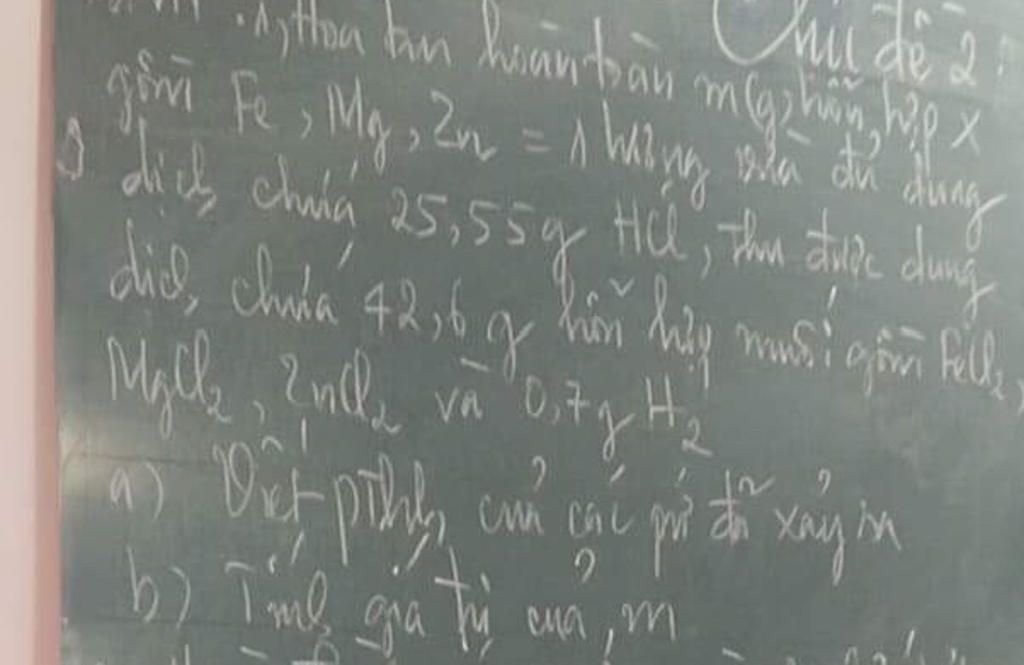 Chủ đề 2:
1, Hoà tan hoàn toàn m(g) hỗn hợp X
gồm Fe, Mg, Zn = 1 lượng vừa đủ dung
dịch chứa 25,55g HCl, thu được dung
dịch chứa 42,6 g hỗn hợp muối gồm FeCl2,
MgCl2, ZnCl2 và 0,7g H2
a) Viết pthh của các pứ đã xảy ra
b) Tính giá trị của m